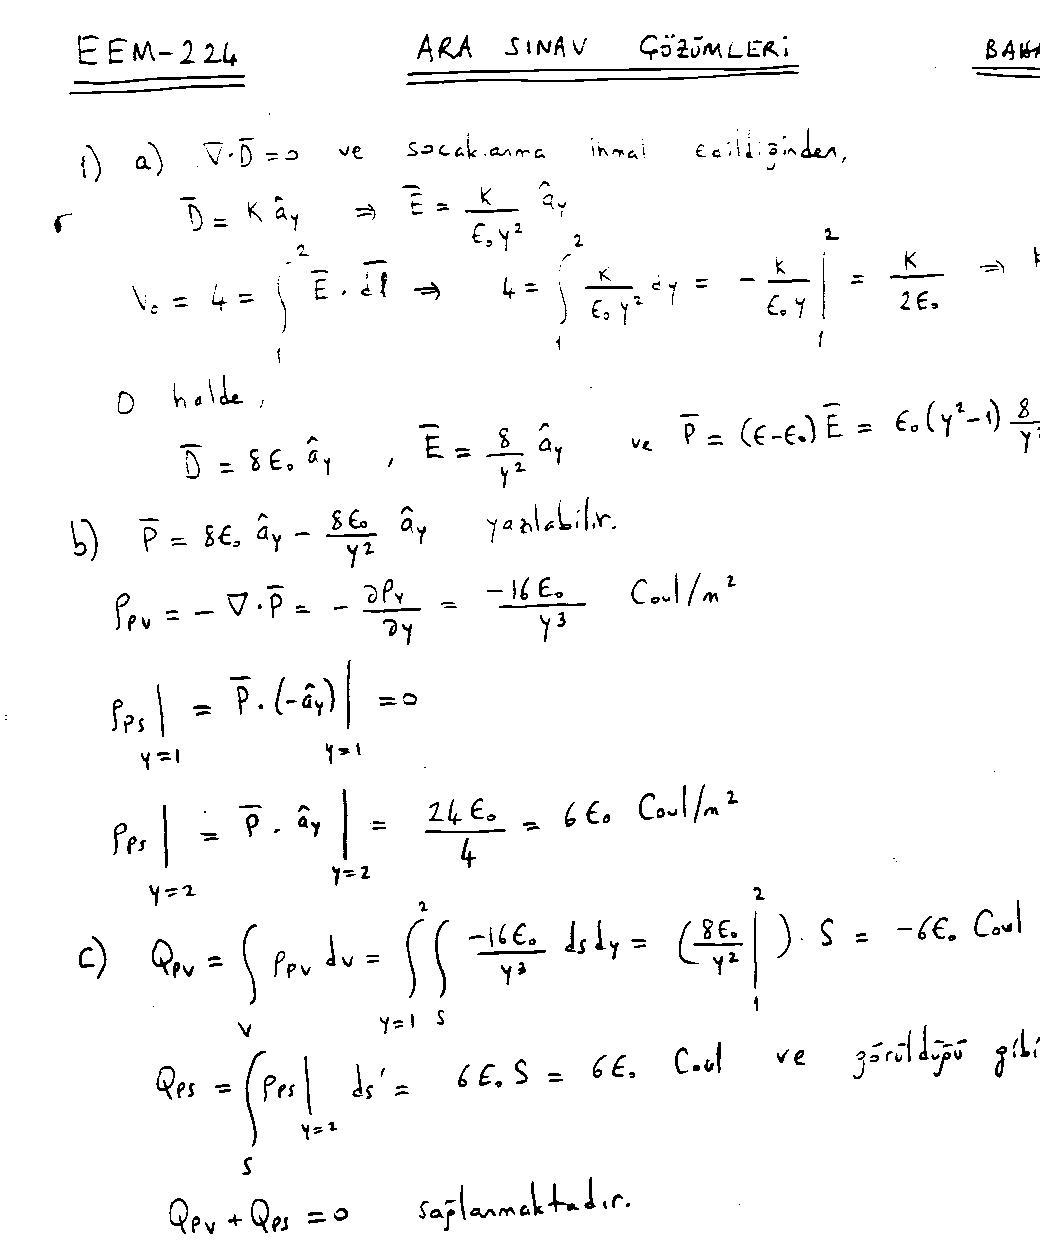 EEM-224 ARA SINAV ÇÖZÜMLERİ
1) a) ∇·D̄ = 0 ve saçaklanma ihmal edildiğinden,
D̄ = K â_y ⇒ Ē = K/(ε₀y²) â_y
V₀ = 4 = ∫₁² Ē·dl̄ ⇒ 4 = ∫₁² K/(ε₀y²) dy = -K/(ε₀y) |₁² = K/(2ε₀) ⇒
O halde,
D̄ = 8ε₀ â_y , Ē = 8/y² â_y ve P̄ = (ε-ε₀)Ē = ε₀(y²-1) 8/y²
b) P̄ = 8ε₀ â_y - 8ε₀/y² â_y yazılabilir.
ρ_pv = -∇·P̄ = -∂P_y/∂y = -16ε₀/y³ Coul/m²
ρ_ps |_{y=1} = P̄·(-â_y) |_{y=1} = 0
ρ_ps |_{y=2} = P̄·â_y |_{y=2} = 24ε₀/4 = 6ε₀ Coul/m²
c) Q_pv = ∫_V ρ_pv dv = ∫_{y=1}^{2} ∫_S -16ε₀/y³ ds dy = (8ε₀/y² |₁²)·S = -6ε₀ Coul
Q_ps = ∫_S ρ_ps |_{y=2} ds' = 6ε₀S = 6ε₀ Coul ve görüldüğü gibi
Q_pv + Q_ps = 0 sağlanmaktadır.